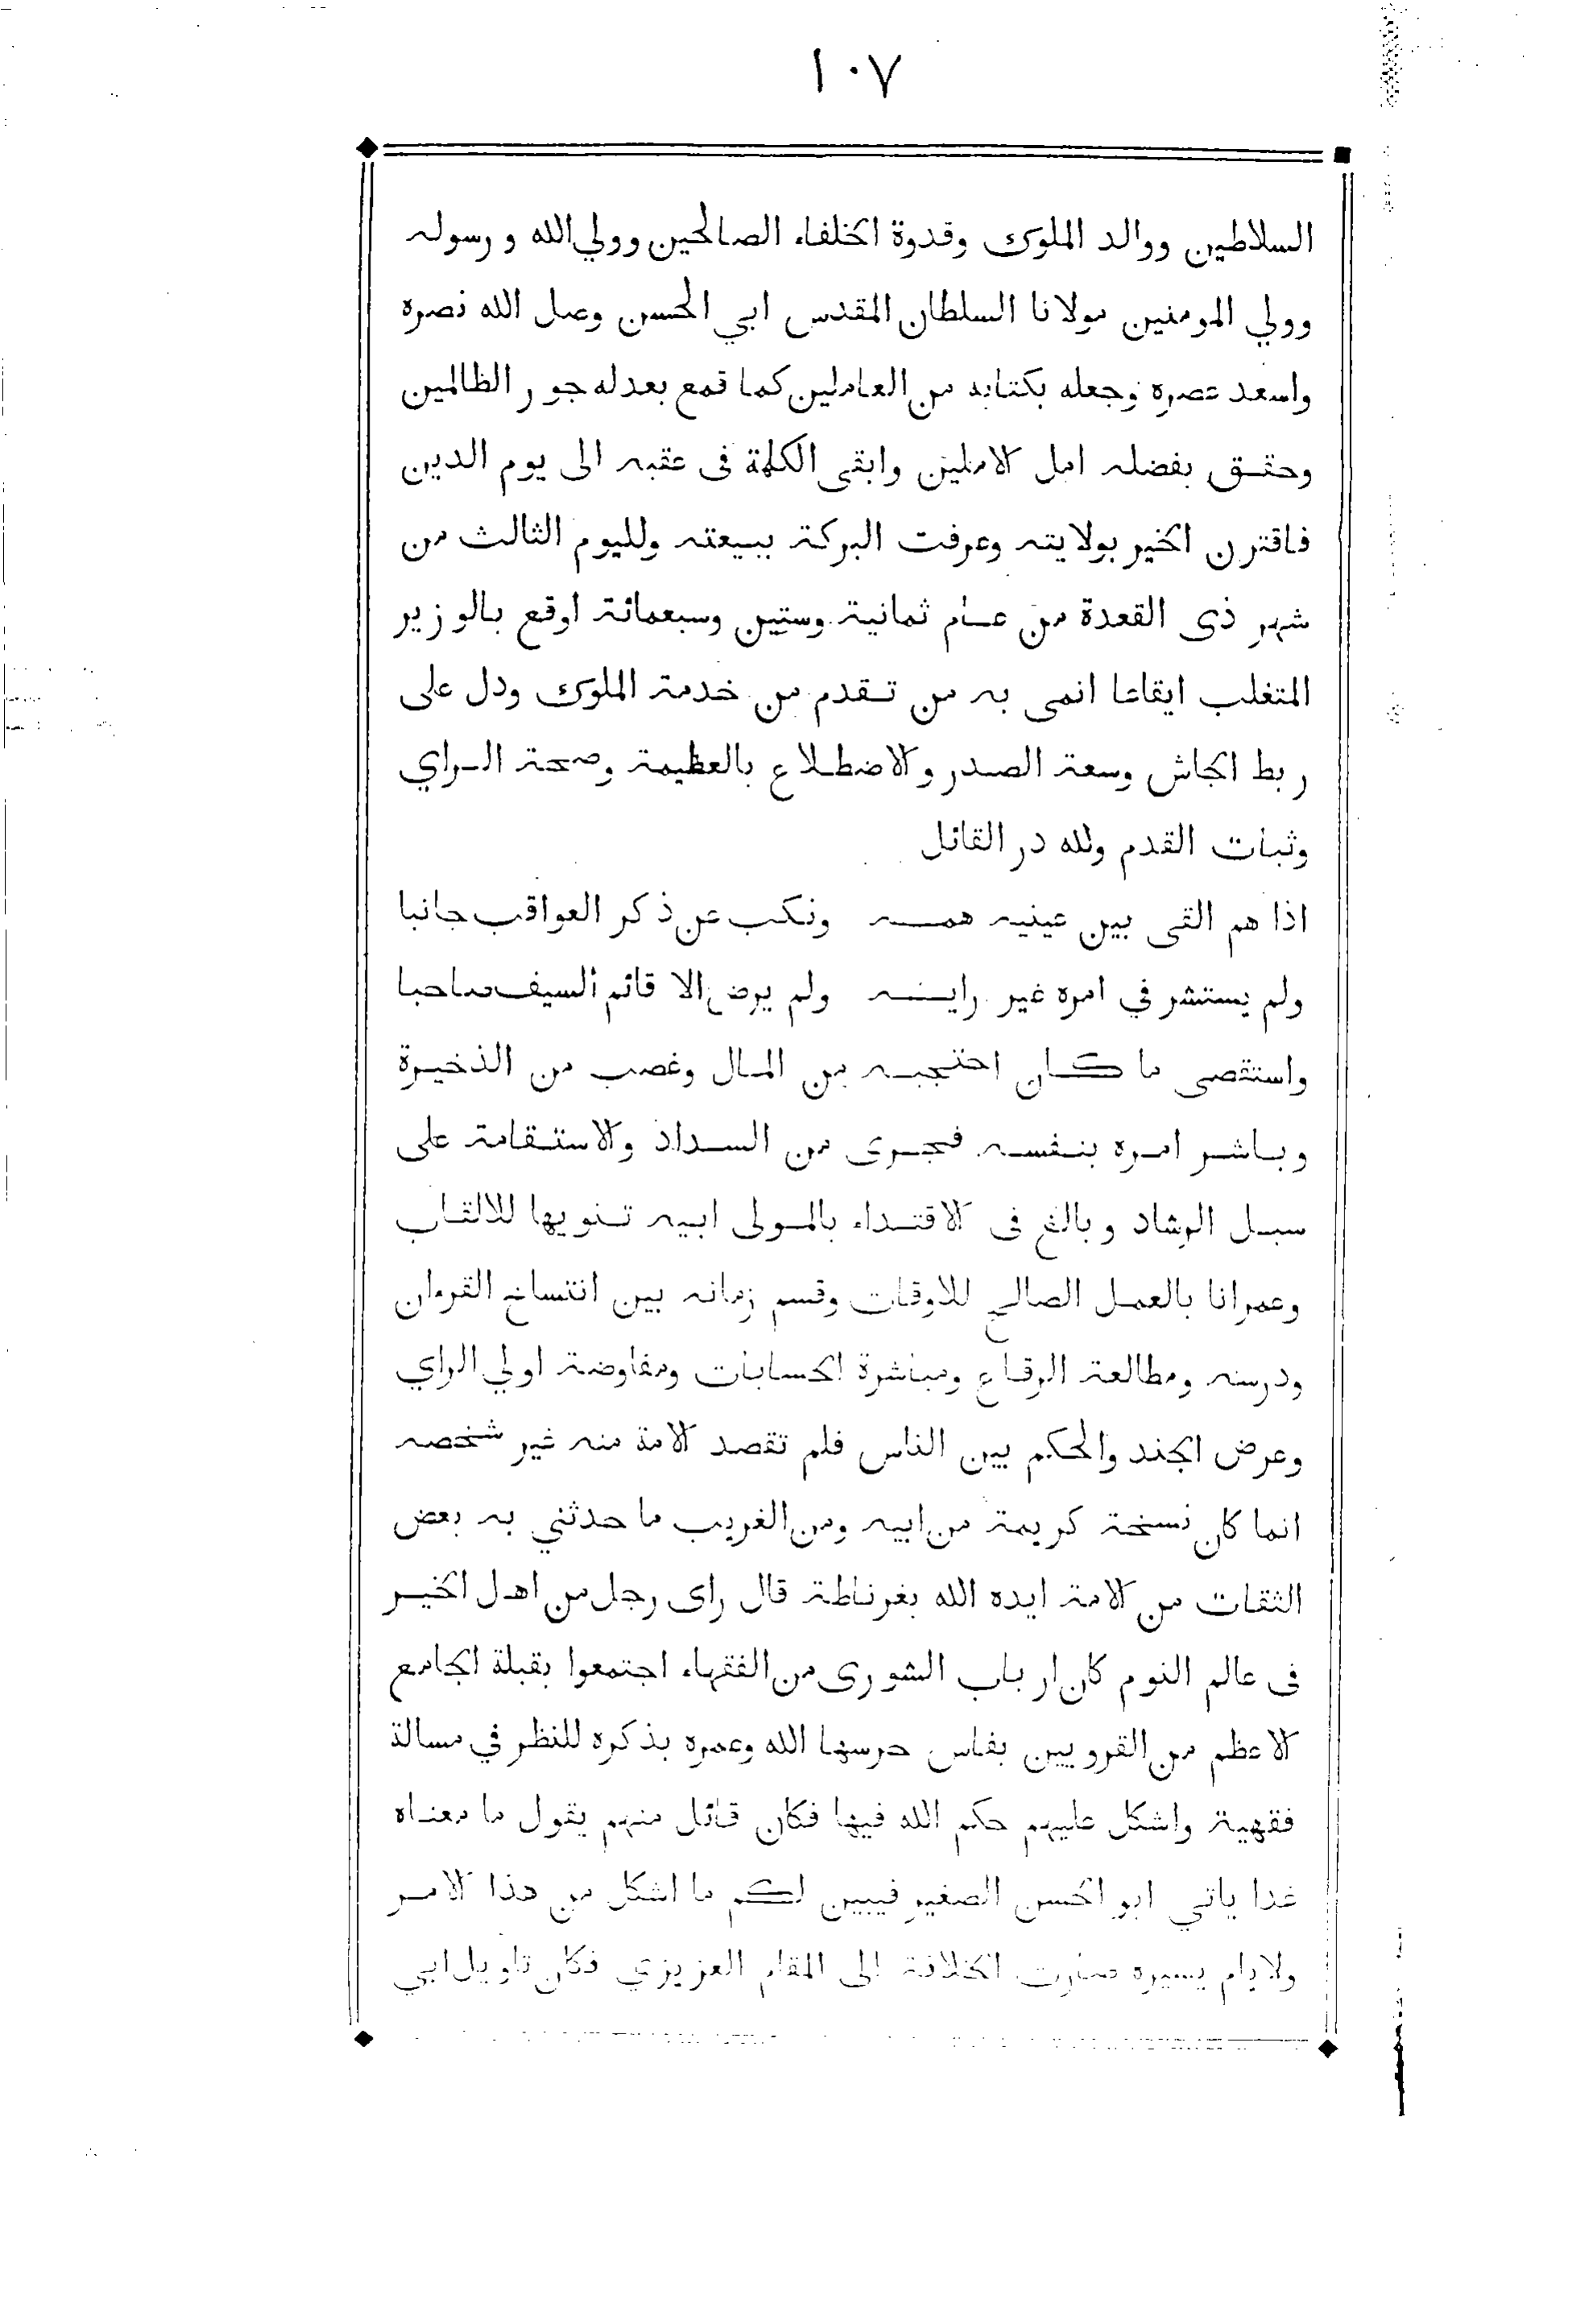 ١٠٧
السلاطين ووالد الملوك وقدوة الخلفاء الصالحين وولي الله ورسوله
وولي المومنين مولانا السلطان المقدس ابي الحسن وصل الله نصره
واسعد عصره وجعله بكتابه من العاملين كما قمع بعدله جور الظالمين
وحقق بفضله امل الاملين وابقى الكلمة فى عقبه الى يوم الدين
فاقترن الخير بولايته وعرفت البركة ببيعته ولليوم الثالث من
شهر ذى القعدة من عام ثمانية وستين وسبعمائة اوقع بالوزير
المتغلب ايقاعا انمى به من تقدم من خدمة الملوك ودل على
ربط الجاش وسعة الصدر والاضطلاع بالعظيمة وصحة الراي
وثبات القدم ولله در القائل
اذا هم القى بين عينيه همه ونكب عن ذكر العواقب جانبا
ولم يستشر في امره غير رايه ولم يرض الا قائم السيف صاحبا
واستقصى ما كان احتجبه من المال وغصب من الذخيرة
وباشر امره بنفسه فجرى من السداد والاستقامة على
سبل الرشاد وبالغ فى الاقتداء بالمولى ابيه تنويها للالقاب
وعمرانا بالعمل الصالح للاوقات وقسم زمانه بين انتساخ القرءان
ودرسه ومطالعة الرقاع ومباشرة الحسابات ومفاوضة اولي الراي
وعرض الجند والحكم بين الناس فلم تفقد الامة منه غير شخصه
انما كان نسخة كريمة من ابيه ومن الغريب ما حدثني به بعض
الثقات من الامة ايده الله بغرناطة قال راى رجل من اهل الخير
فى عالم النوم كان ارباب الشورى من الفقهاء اجتمعوا بقبلة الجامع
الاعظم من القرويين بفاس حرسها الله وعمره بذكره للنظر في مسالة
فقهية واشكل عليهم حكم الله فيها فكان قائل منهم يقول ما معناه
غدا ياتي ابو الحسن الصغير فيبين لكم ما اشكل من هذا الامر
ولايام يسيره صارت الخلافة الى المقام العزيزي فكان تاويل ابي